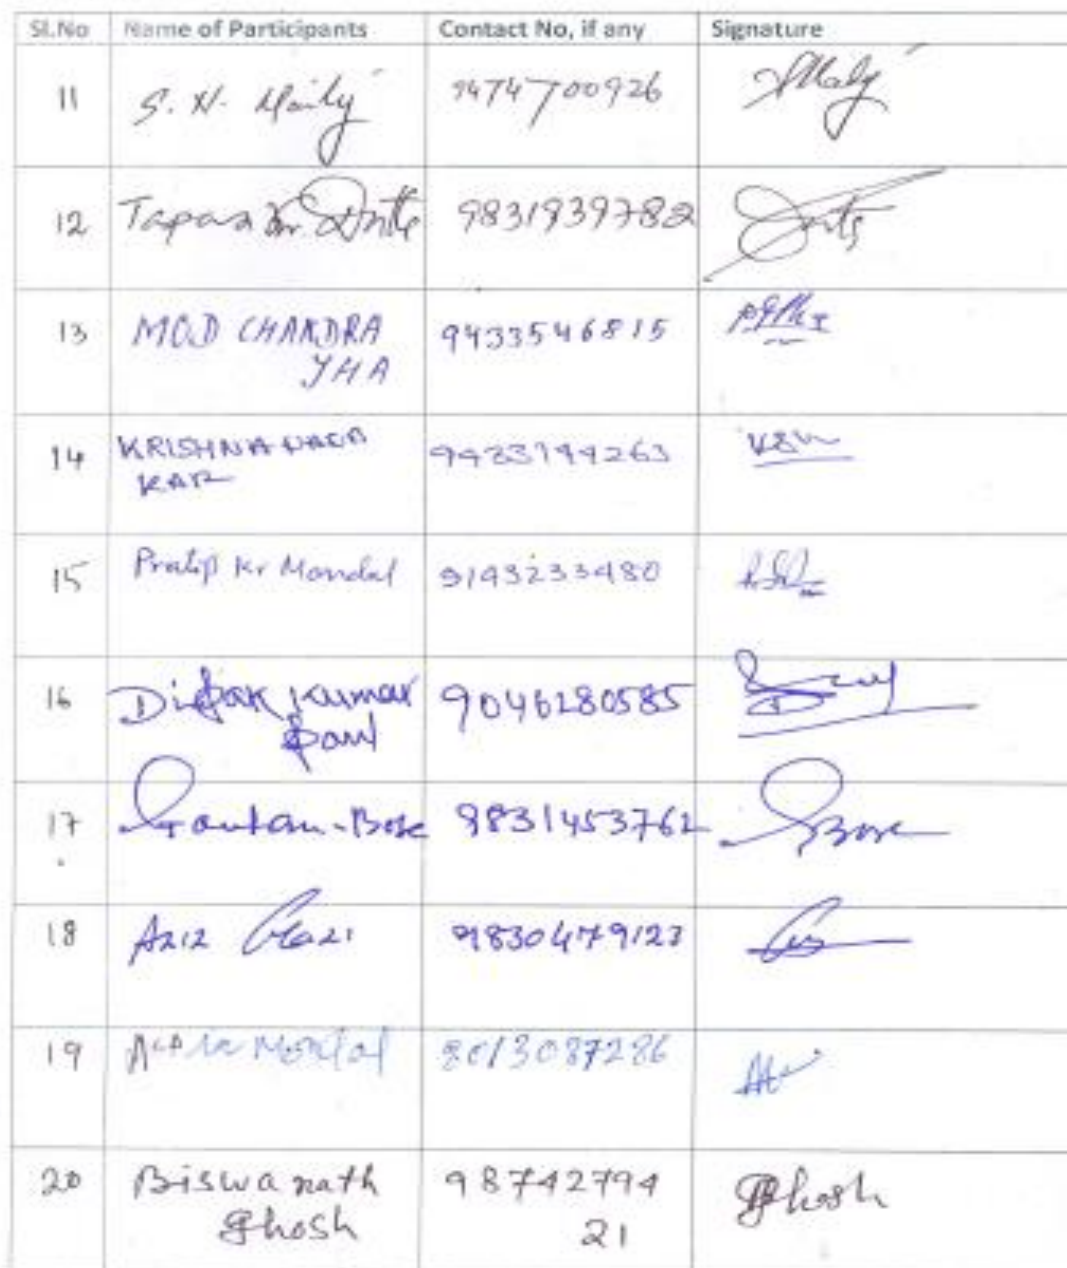 Sl.No Name of Participants Contact No, if any Signature
11 S. N. Maity 9474700926
12 Tapas Kr. 9831939782
13 CHANDRA 9433546815
JHA
14 KRISHNA 9433144263
KAR
15 Pratip Kr Mondal 9143233480
16 Dipak Kumar 9046280585
Paul
17 Goutam Bose 9831453762 Bose
18 Aziz Gazi 9830479123
19 Mondal 8013087286
20 Biswanath 98742794 Ghosh
Ghosh 21